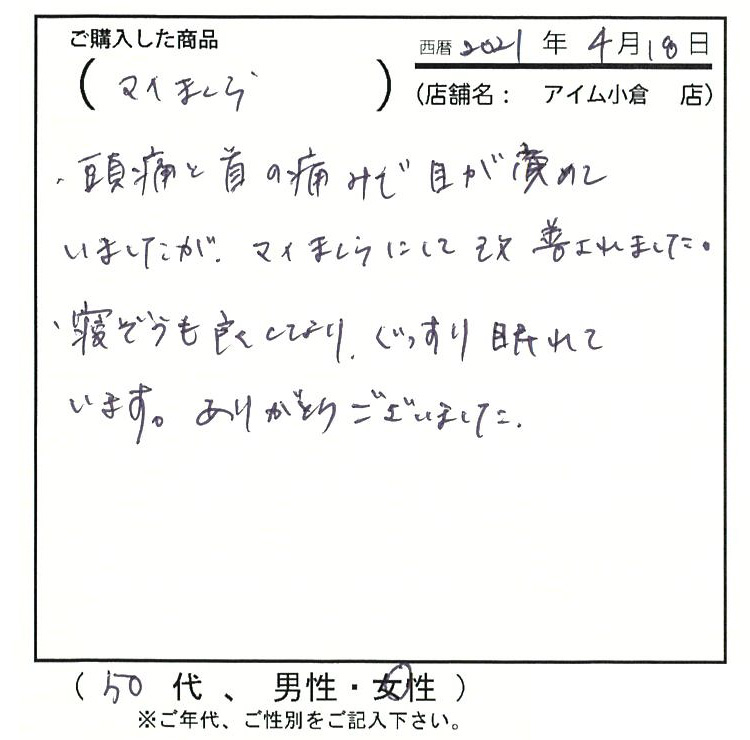 ご購入した商品
(マイまくら)
西暦 2021 年 4月18日
(店舗名: アイム小倉 店)
・頭痛と首の痛みで目が覚めて
いましたが、マイまくらにして改善されました。
・寝ぞうも良くしており、ぐっすり眠れて
います。ありがとうございました。
(50 代、男性・女性)
※ご年代、ご性別をご記入下さい。